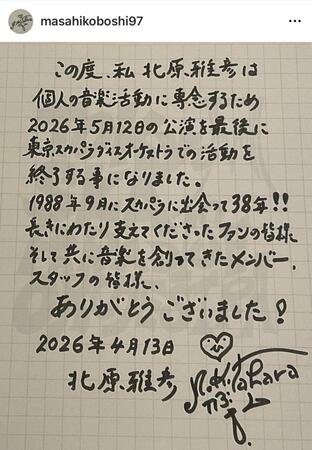 masahikoboshi97
この度、私 北原雅彦は
個人の音楽活動に専念するため
2026年5月12日の公演を最後に
東京スカパラダイスオーケストラでの活動を
終了する事になりました。
1988年9月にスカパラに出会って38年!!
長きにわたり支えてくださったファンの皆様
そして共に音楽を創ってきたメンバー、
スタッフの皆様、
ありがとうございました!
2026年4月13日
北原雅彦